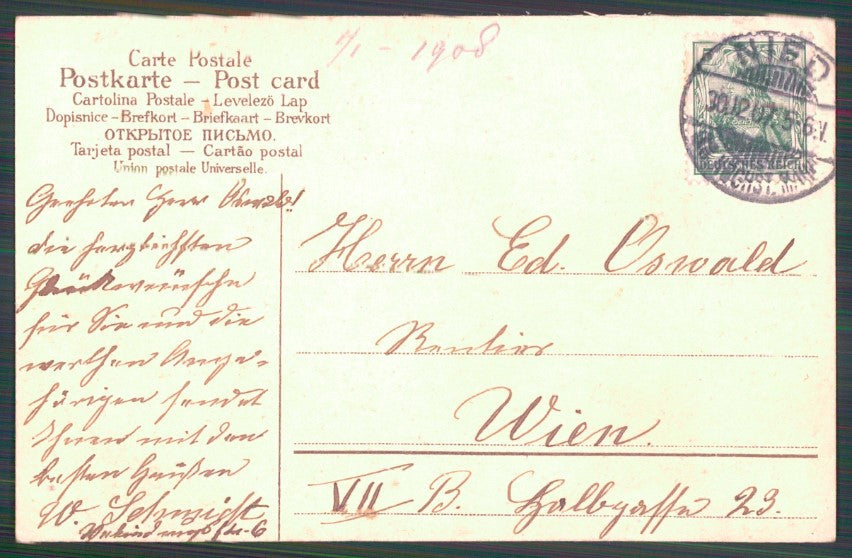 Carte Postale
Postkarte — Post card
Cartolina Postale – Levelezö Lap
Dopisnice – Brefkort – Briefkaart – Brevkort
ОТКРЫТОЕ ПИСЬМО.
Tarjeta postal — Cartão postal
Union postale Universelle.
1/1 – 1908
NIED
30.12.07. 5-6.V.
DEUTSCHES REICH
Geehrter Herr Oswald!
die herzlichsten
Glückwünsche
für Sie und die
werthen Ange-
hörigen sendet
Ihnen mit den
besten Grüßen
W. Schmidt
Herrn Ed. Oswald
Rentier
Wien.
VII B. Halbgasse 23.